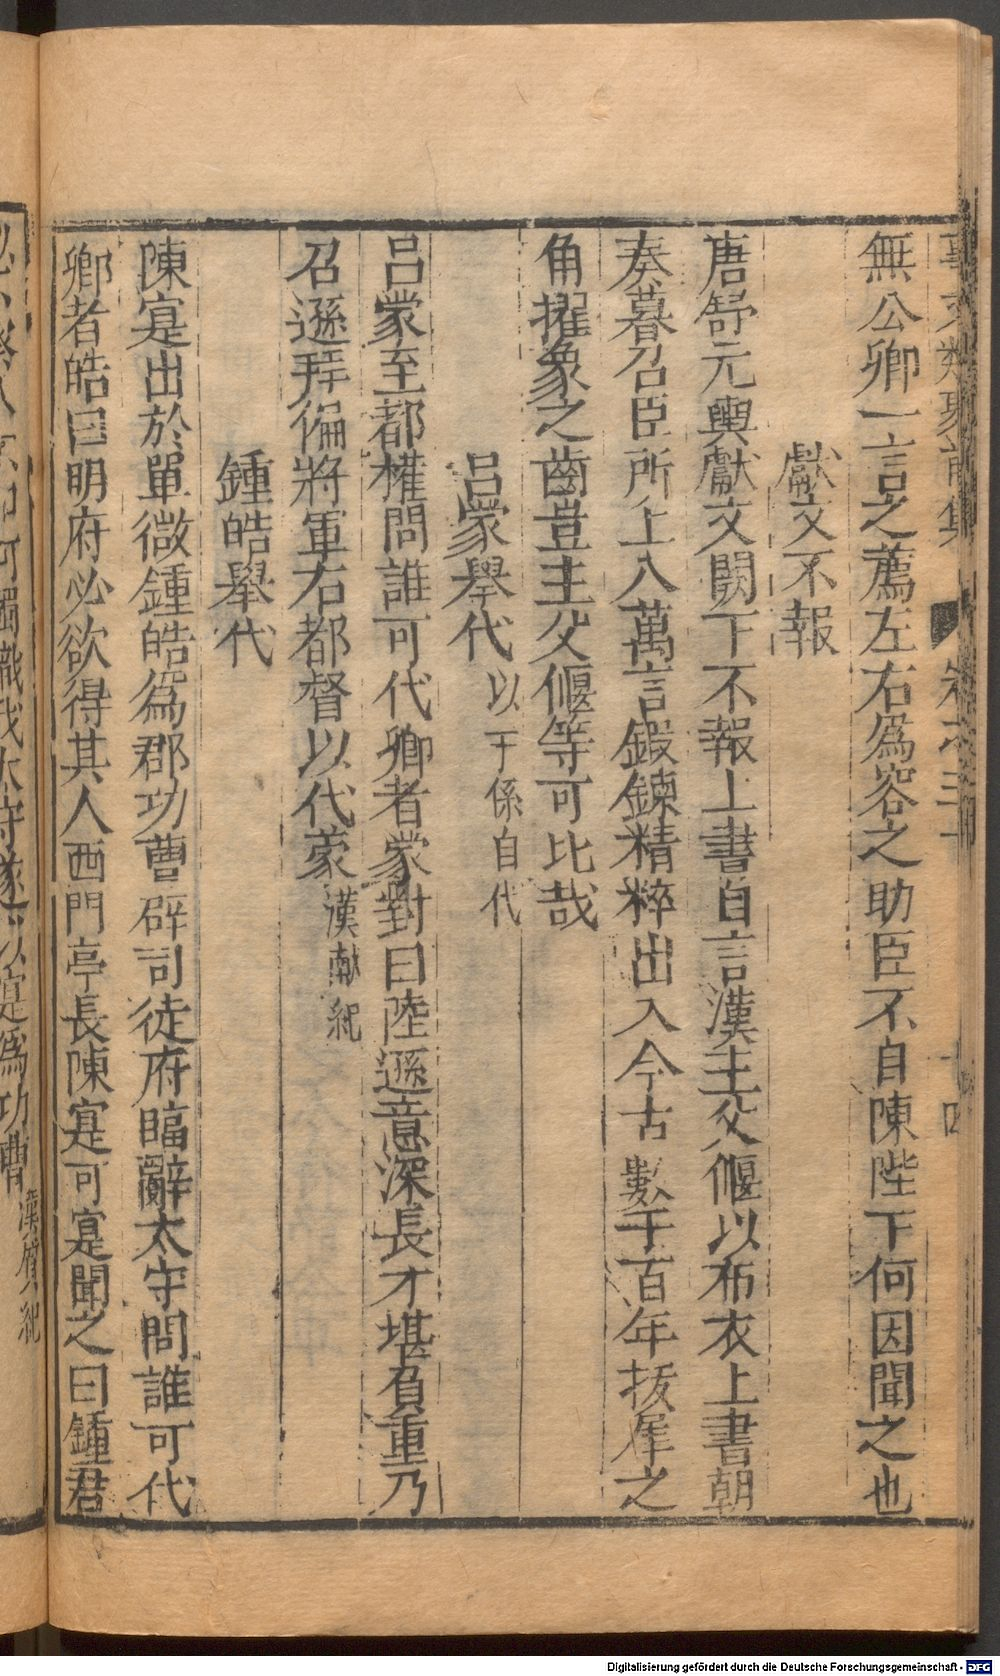 事文類聚前集 卷之三十 十四
無公卿一言之薦左右爲容之助臣不自陳陛下何因聞之也
獻文不報
唐舒元輿獻文闕下不報上書自言漢主父偃以布衣上書朝
奏暮召臣所上八萬言鍛鍊精粹出入今古數千百年抜犀之
角擢象之齒豈主父偃等可比哉
呂蒙舉代 以下係自代
呂蒙至都權問誰可代卿者蒙對曰陸遜意深長才堪負重乃
召遜拜偏將軍右都督以代蒙 漢献紀
鍾皓舉代
陳寔出於單微鍾皓爲郡功曹辟司徒府臨辭太守問誰可代
卿者皓曰明府必欲得其人西門亭長陳寔可寔聞之曰鍾君
何獨識我太守遂以寔爲功曹 漢質紀
Digitalisierung gefördert durch die Deutsche Forschungsgemeinschaft - DFG